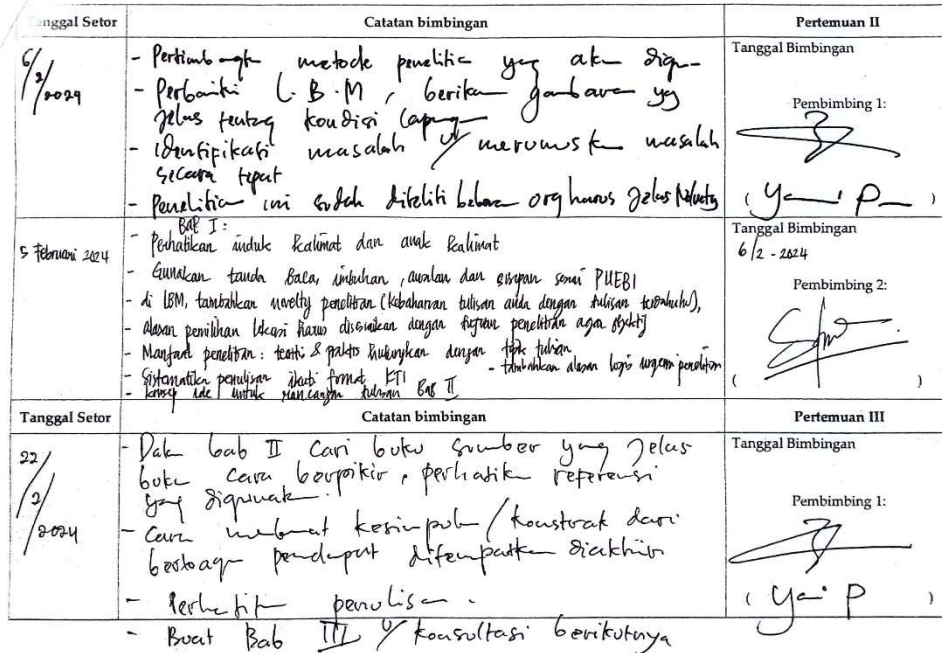 Tanggal Setor
Catatan bimbingan
Pertemuan II
6/2/2024
- Pertimbangkan metode penelitian yang akan digu-
- Perbaiki L.B.M, berikan gambaran yg
jelas tentang kondisi lapangan
- Identifikasi masalah u/ merumuskan masalah
secara tepat
- Penelitian ini sudah diteliti beberapa org harus jelas Novelty
Tanggal Bimbingan
Pembimbing 1:
( Yani P )
5 Februari 2024
Bab I:
- Perhatikan induk kalimat dan anak kalimat
- Gunakan tanda baca, imbuhan, awalan dan sisipan sesuai PUEBI
- di LBM, tambahkan novelty penelitian (kebaharuan tulisan anda dengan tulisan terdahulu),
- alasan pemilihan lokasi harus disesuaikan dengan tujuan penelitian agar objektif
- Manfaat penelitian: teoritis & praktis hubungkan dengan topik tulisan
- tambahkan alasan logis urgensi penelitian
- Sistematika penulisan ikuti format KTI
- konsep ide untuk rancangan tulisan Bab II
Tanggal Bimbingan
6/2 - 2024
Pembimbing 2:
( )
Tanggal Setor
Catatan bimbingan
Pertemuan III
22/2/2024
- Dalam bab II cari buku sumber yang jelas
buka cara berpikir, perhatikan referensi
yang digunakan.
- Cara membuat kesimpulan / konstruk dari
berbagai pendapat ditempatkan diakhir
- Perhatikan penulisan.
- Buat Bab III u/ konsultasi berikutnya
Tanggal Bimbingan
Pembimbing 1:
( Yani P )